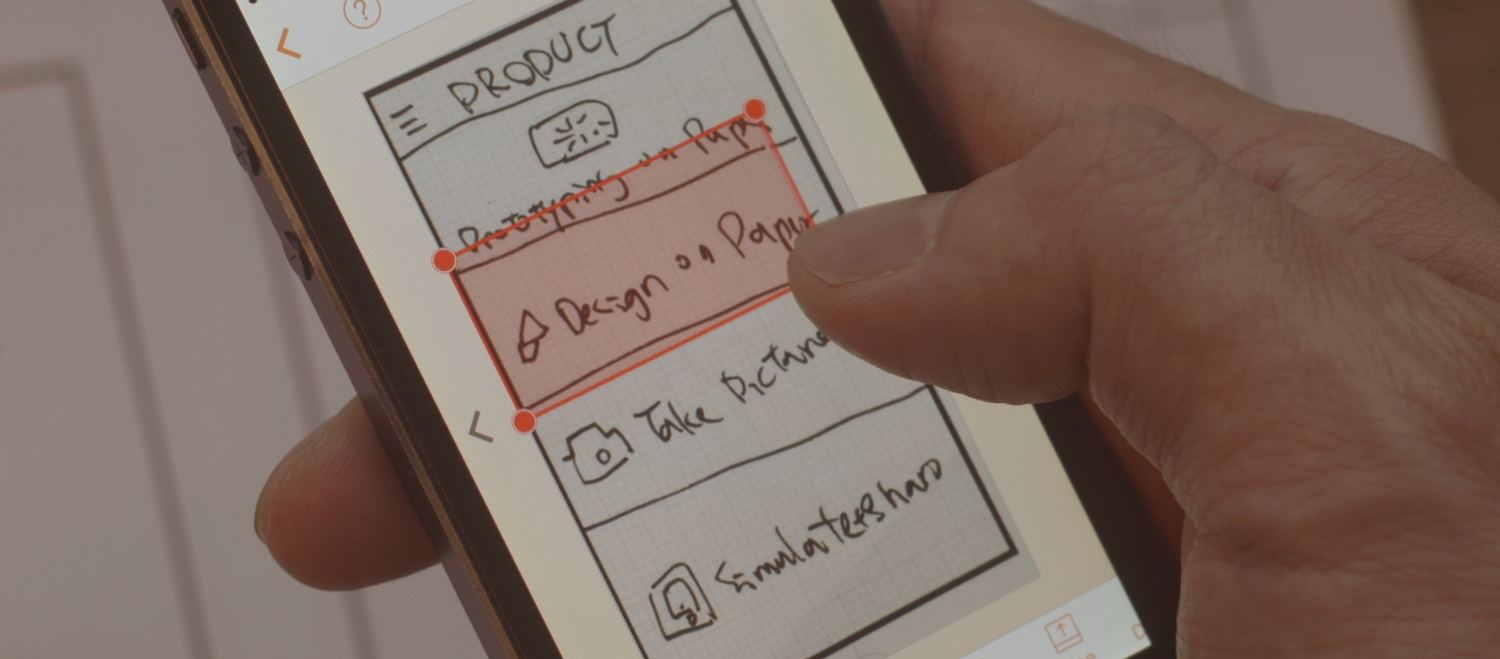 PRODUCT
Prototyping on Paper
Design on Paper
Take Picture
Simulate & Share